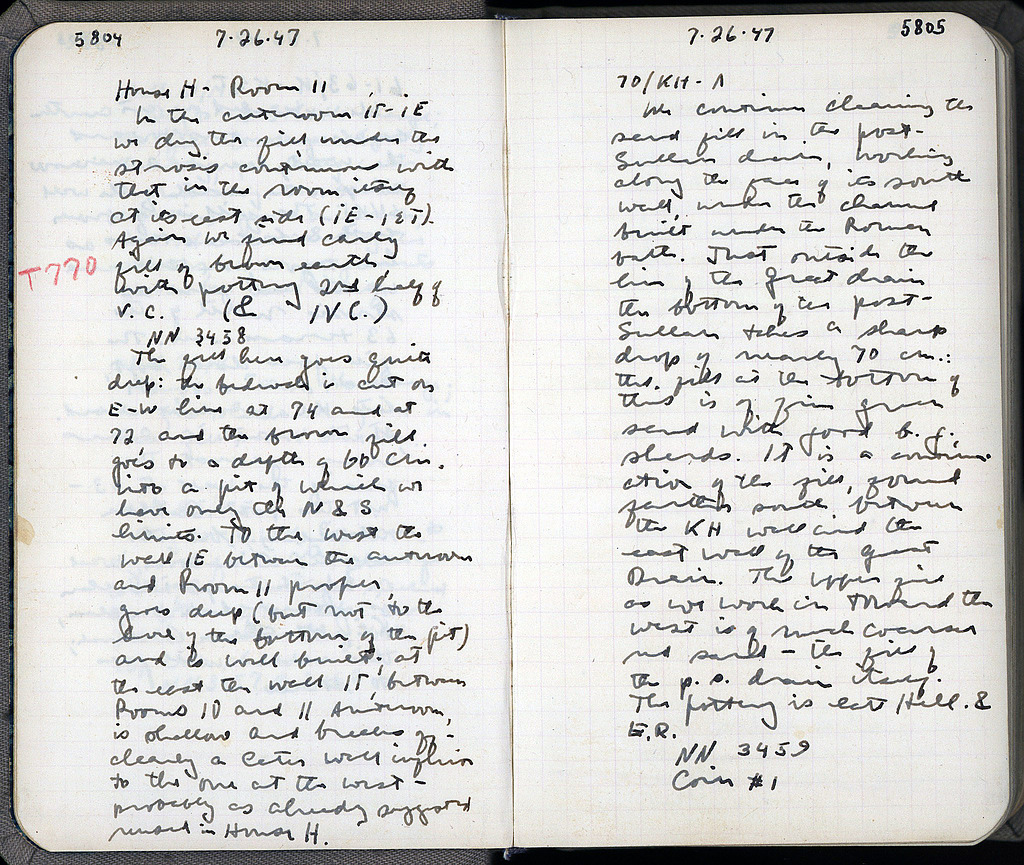 5804 7·26·47
House H - Room 11
In the anteroom IΓ-IE
we dig the fill under the
strosis continuous with
that in the room itself
at its east side (IE-IΣT).
Again we find early
fill of brown earth,
T 770
with pottery 2nd half of
V. C. (& IV C.)
NN 3438
The fill here goes quite
deep: the bedrock is cut on
E-W line at 74 and at
72 and the brown fill
goes to a depth of 60 cm.
into a pit of which we
have only the N & S
limits. To the west the
wall IE between the anteroom
and Room 11 proper,
goes deep (but not to the
level of the bottom of the pit)
and is well built; at
the east the wall IΓ, between
Rooms 10 and 11 Anteroom,
is shallow and breaks off -
clearly a later wall inferior
to the one at the west -
probably as already suggested
reused in House H.
7·26·47 5805
70/KH-Λ
We continue cleaning the
sand fill in the post-
Sullan drain, working
along the face of its south
wall, under the channel
built under the Roman
bath. Just outside the
line of the Great drain
the bottom of the post-
Sullan takes a sharp
drop of nearly 70 cm.:
the fill at the bottom of
this is of fine green
sand with good b. g.
sherds. It is a continu-
ation of the fill, found
farther south, between
the KH wall and the
east wall of the great
Drain. The upper fill
as we work in toward the
west is of much coarser
red sand - the fill of
the p. s. drain itself.
The pottery is late Hell. &
E.R.
NN 3459
Coin #1